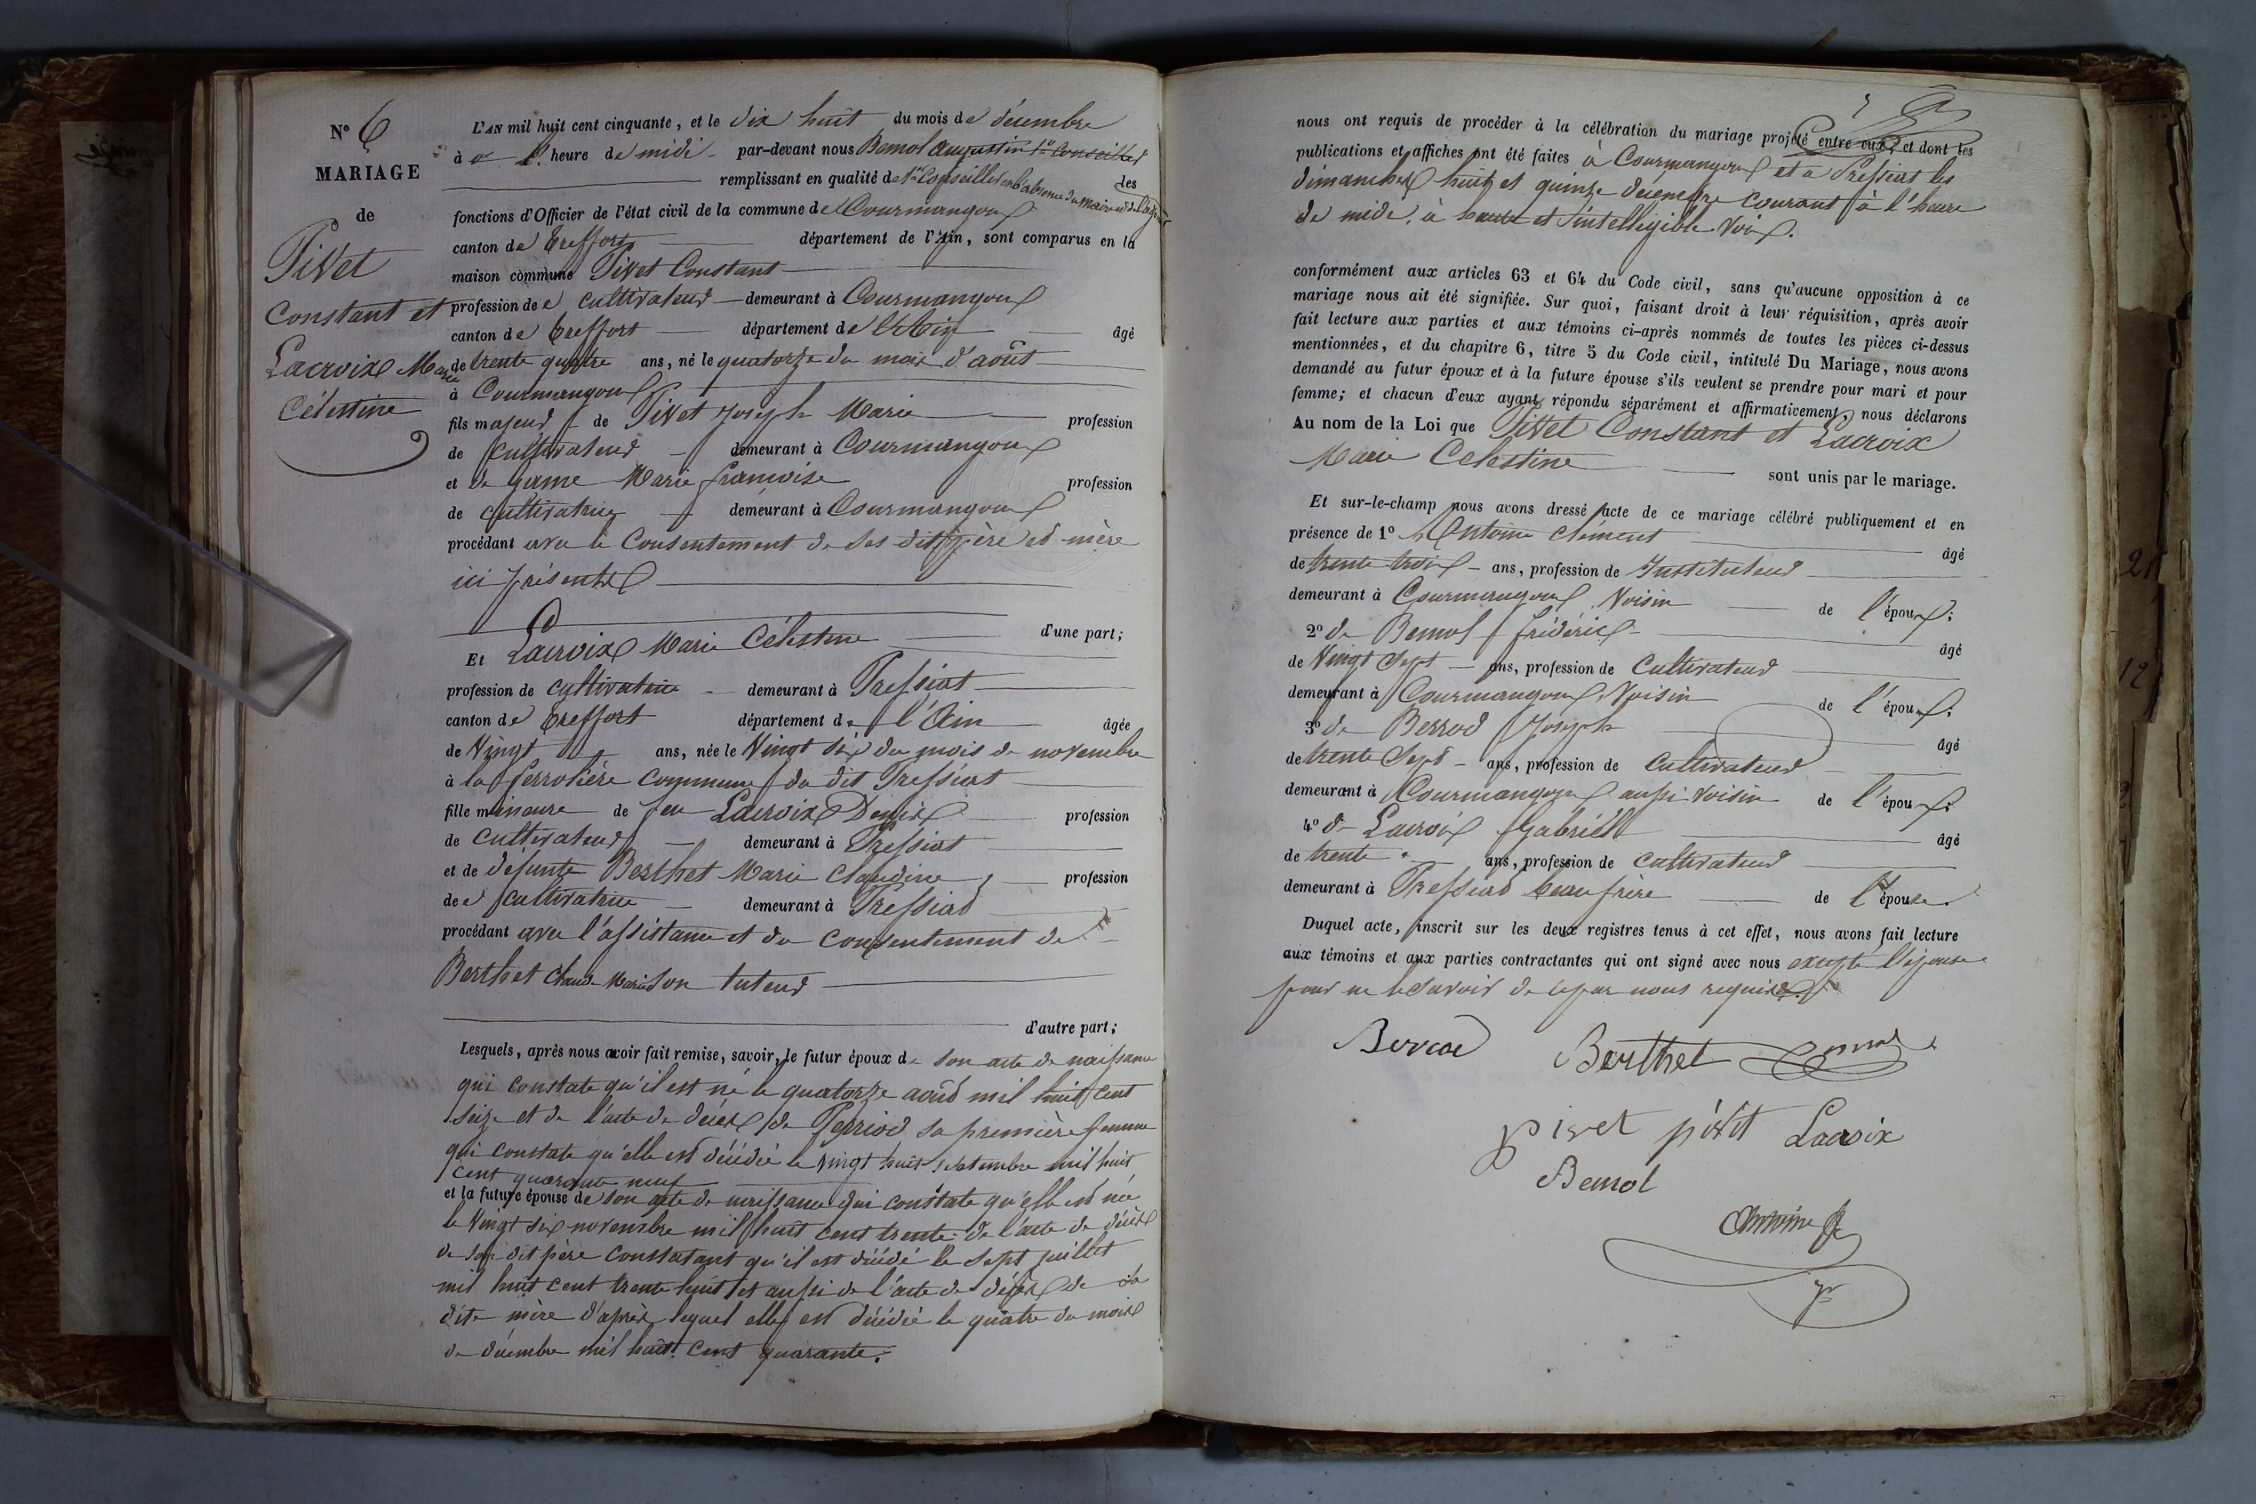 N° 6
MARIAGE
de
Pivet
Constant et
Lacroix Marie
Célestine
L'AN mil huit cent cinquante, et le dix huit du mois de décembre
à l'heure de midi par-devant nous Bemol Augustin 1er Conseiller
remplissant en qualité de 1er Conseiller en l'absence du maire et de l'adjoint les
fonctions d'Officier de l'état civil de la commune de Courmangoux
canton de Treffort département de l'Ain, sont comparus en la
maison commune Pivet Constant
profession de cultivateur demeurant à Courmangoux
canton de Treffort département de l'Ain âgé
de trente quatre ans, né le quatorze du mois d'août
à Courmangoux
fils majeur de Pivet Joseph Marie profession
de cultivateur demeurant à Courmangoux
et de Marie françoise profession
de cultivatrice demeurant à Courmangoux
procédant avec le Consentement de ses dits père et mère
ici présents
d'une part;
Et Lacroix Marie Célestine
profession de cultivatrice demeurant à Pressiat
canton de Treffort département de l'Ain âgée
de Vingt ans, née le Vingt six du mois de novembre
à la ferrolière commune du dit Pressiat
fille mineure de feu Lacroix Denis profession
de cultivateur demeurant à Pressiat
et de défunte Berthet Marie Claudine, profession
de cultivatrice demeurant à Pressiat
procédant avec l'assistance et du consentement de
Berthet Claude Marie son tuteur
d'autre part;
Lesquels, après nous avoir fait remise, savoir, le futur époux de son acte de naissance
qui constate qu'il est né le quatorze août mil huit cent
seize et de l'acte de décès de Perriod sa première femme
qui constate qu'elle est décédée le Vingt huit septembre mil huit
cent quarante neuf
et la future épouse de son acte de naissance qui constate qu'elle est née
le Vingt six novembre mil huit cent trente de l'acte de décès
de son dit père constatant qu'il est décédé le sept juillet
mil huit cent trente huit et aussi de l'acte de décès de sa
dite mère d'après lequel elle est décédée le quatre du mois
de décembre mil huit cent quarante.
nous ont requis de procéder à la célébration du mariage projeté entre eux, et dont les
publications et affiches ont été faites à Courmangoux et a Pressiat les
dimanches huit et quinze décembre courant à l'heure
de midi. à haute et intelligible Voix.
conformément aux articles 63 et 64 du Code civil, sans qu'aucune opposition à ce
mariage nous ait été signifiée. Sur quoi, faisant droit à leur réquisition, après avoir
fait lecture aux parties et aux témoins ci-après nommés de toutes les pièces ci-dessus
mentionnées, et du chapitre 6, titre 5 du Code civil, intitulé Du Mariage, nous avons
demandé au futur époux et à la future épouse s'ils veulent se prendre pour mari et pour
femme; et chacun d'eux ayant répondu séparément et affirmativement, nous déclarons
Au nom de la Loi que Pivet Constant et Lacroix
Marie Célestine
sont unis par le mariage.
Et sur-le-champ nous avons dressé acte de ce mariage célébré publiquement et en
présence de 1° Antoine Clément âgé
de trente trois ans, profession de Instituteur
demeurant à Courmangoux Voisin de l'époux;
2° de Bemol frédéric âgé
de Vingt Sept ans, profession de Cultivateur
demeurant à Courmangoux Voisin de l'époux;
3° de Berrod Joseph âgé
de trente Sept ans, profession de Cultivateur
demeurant à Courmangoux aussi Voisin de l'époux;
4° de Lacroix Gabriel âgé
de trente ans, profession de Cultivateur
demeurant à Pressiat beau frère de l'épouse.
Duquel acte, inscrit sur les deux registres tenus à cet effet, nous avons fait lecture
aux témoins et aux parties contractantes qui ont signé avec nous excepté l'épouse
pour ne le savoir de ce par nous requise.
Berrod
Berthet
pivet pivet Lacroix
Bemol
Antoine